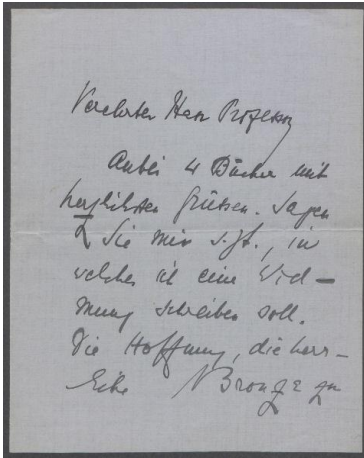 Verehrter Herr Professor
Anbei 4 Bücher mit
herzlichsten Grüssen. Sagen
Sie mir s. Zt., in
welches ich eine Wid-
mung schreiben soll.
Die Hoffnung, die herr-
liche Bronze zu